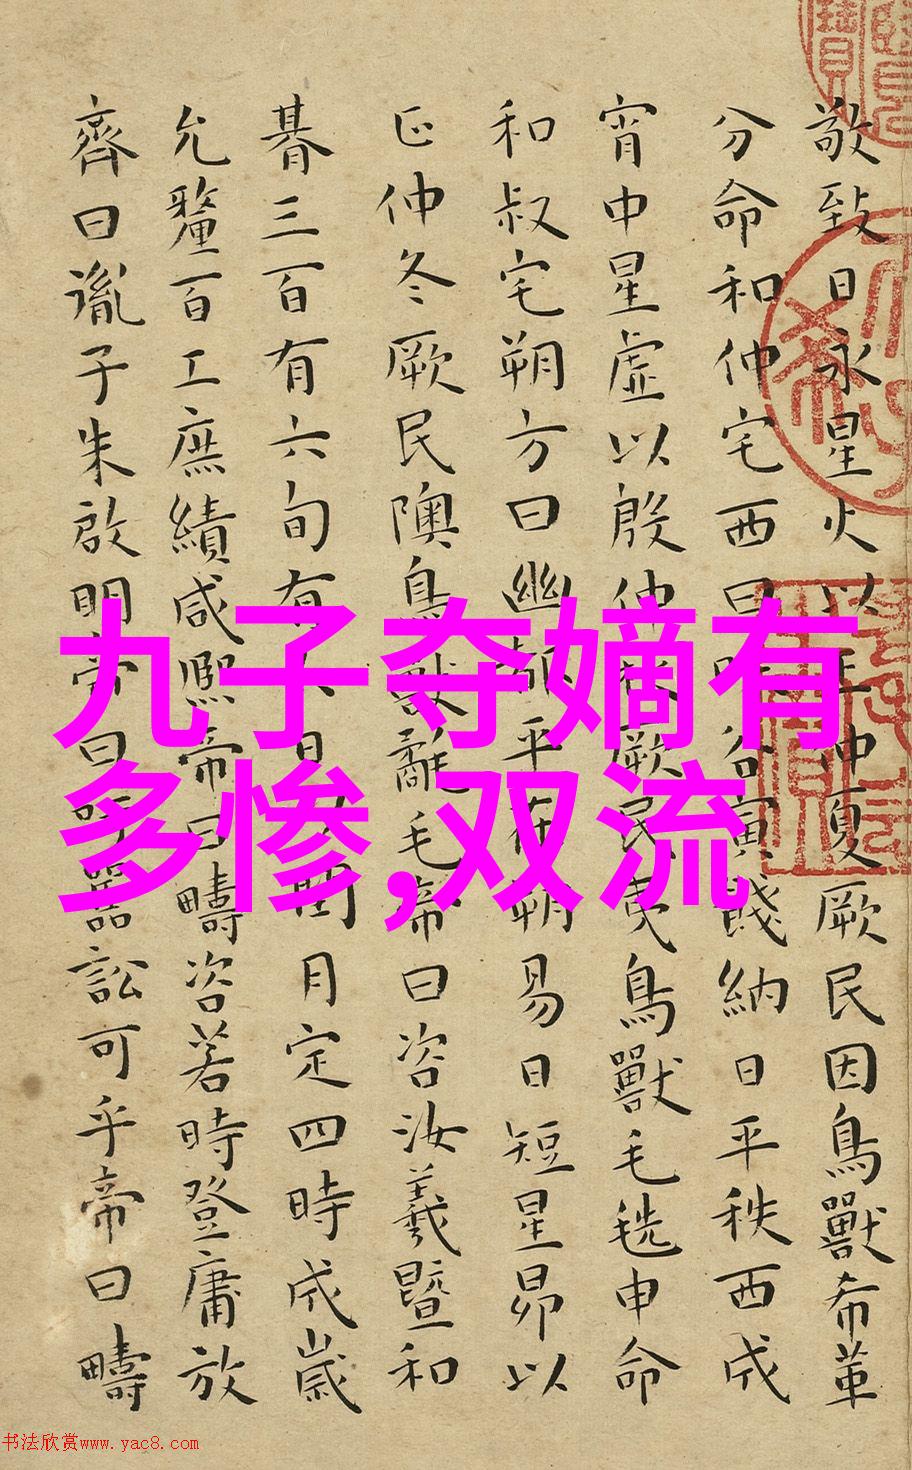 敬致日永星火以正仲夏厥民因鳥獸希革
分命和仲宅西曰昧谷寅餞納日平秩西成
宵中星虛以殷仲秋厥民夷鳥獸毛毨申命
和叔宅朔方曰幽都平在朔易日短星昴以
正仲冬厥民隩鳥獸氄毛帝曰咨汝羲暨和
朞三百有六旬有六日以閏月定四時成歲
允釐百工庶績咸熙帝曰疇咨若時登庸放
齊曰胤子朱啟明帝曰吁嚚訟可乎帝曰疇
九子夺嫡有
多惨,双流
书法欣赏www.yac8.com